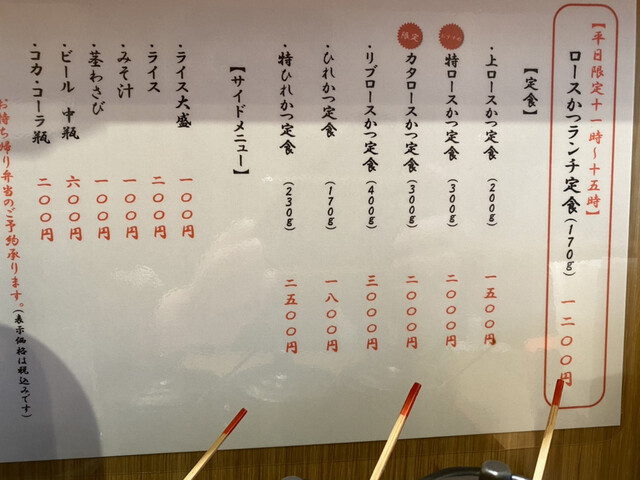 【平日限定十一時～十五時】
ロースかつランチ定食(170g) 一二〇〇円
【定食】
・上ロースかつ定食 (200g) 一五〇〇円
・特ロースかつ定食 (300g) 二〇〇〇円
限定
・カタロースかつ定食 (300g) 二〇〇〇円
・リブロースかつ定食 (400g) 三〇〇〇円
・ひれかつ定食 (170g) 一八〇〇円
・特ひれかつ定食 (230g) 二五〇〇円
【サイドメニュー】
・ライス大盛 一〇〇円
・ライス 二〇〇円
・みそ汁 一〇〇円
・茎わさび 一〇〇円
・ビール 中瓶 六〇〇円
・コカ・コーラ瓶 二〇〇円
お持ち帰り弁当のご予約承ります。(表示価格は税込みです)